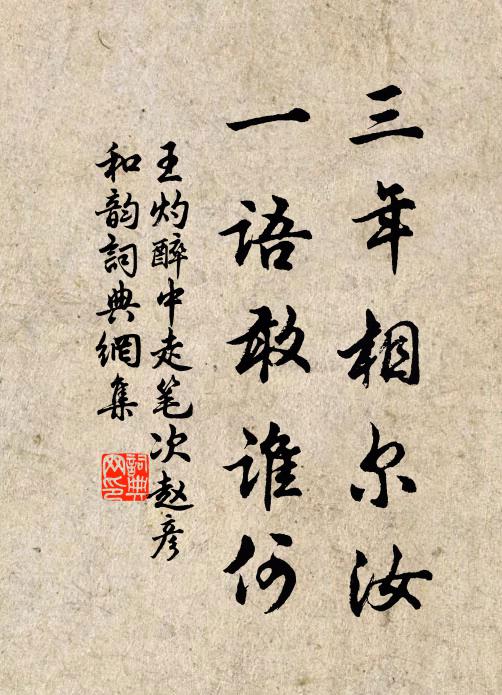 三年相尔汝
一语敢谁何
王灼醉中走笔次赵彦
和韵词典網集
詞典网印